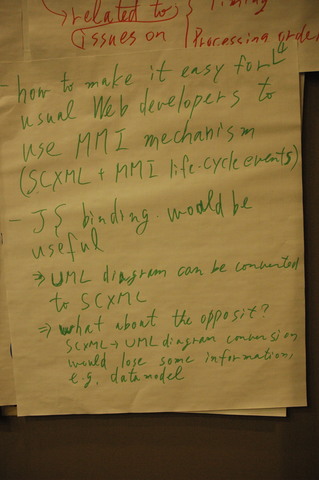 →related to } Timing
issues on Processing order
- how to make it easy for
usual Web developers to
use MMI mechanism
(SCXML + MMI life-cycle events)
- JS binding would be
useful
⇒ UML diagram can be converted
to SCXML
⇒ what about the opposit?
SCXML → UML diagram conversion
would lose some information,
e.g, datamodel